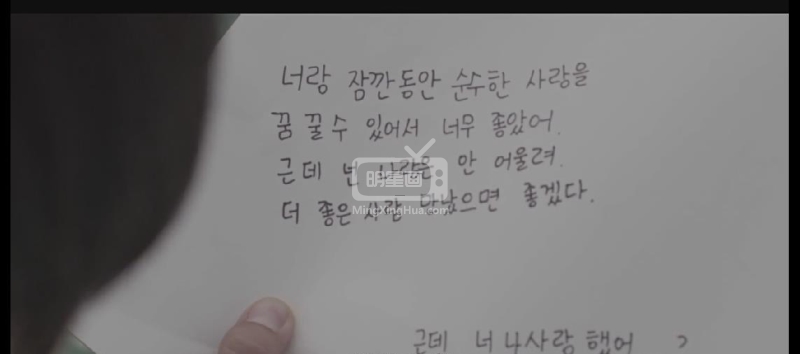 너랑 잠깐동안 순수한 사랑을
꿈 꿀수 있어서 너무 좋았어.
근데 넌 사랑은 안 어울려.
明星画
MingXinHua.com
더 좋은 사람 만났으면 좋겠다.
근데 너 나사랑 했어 ?